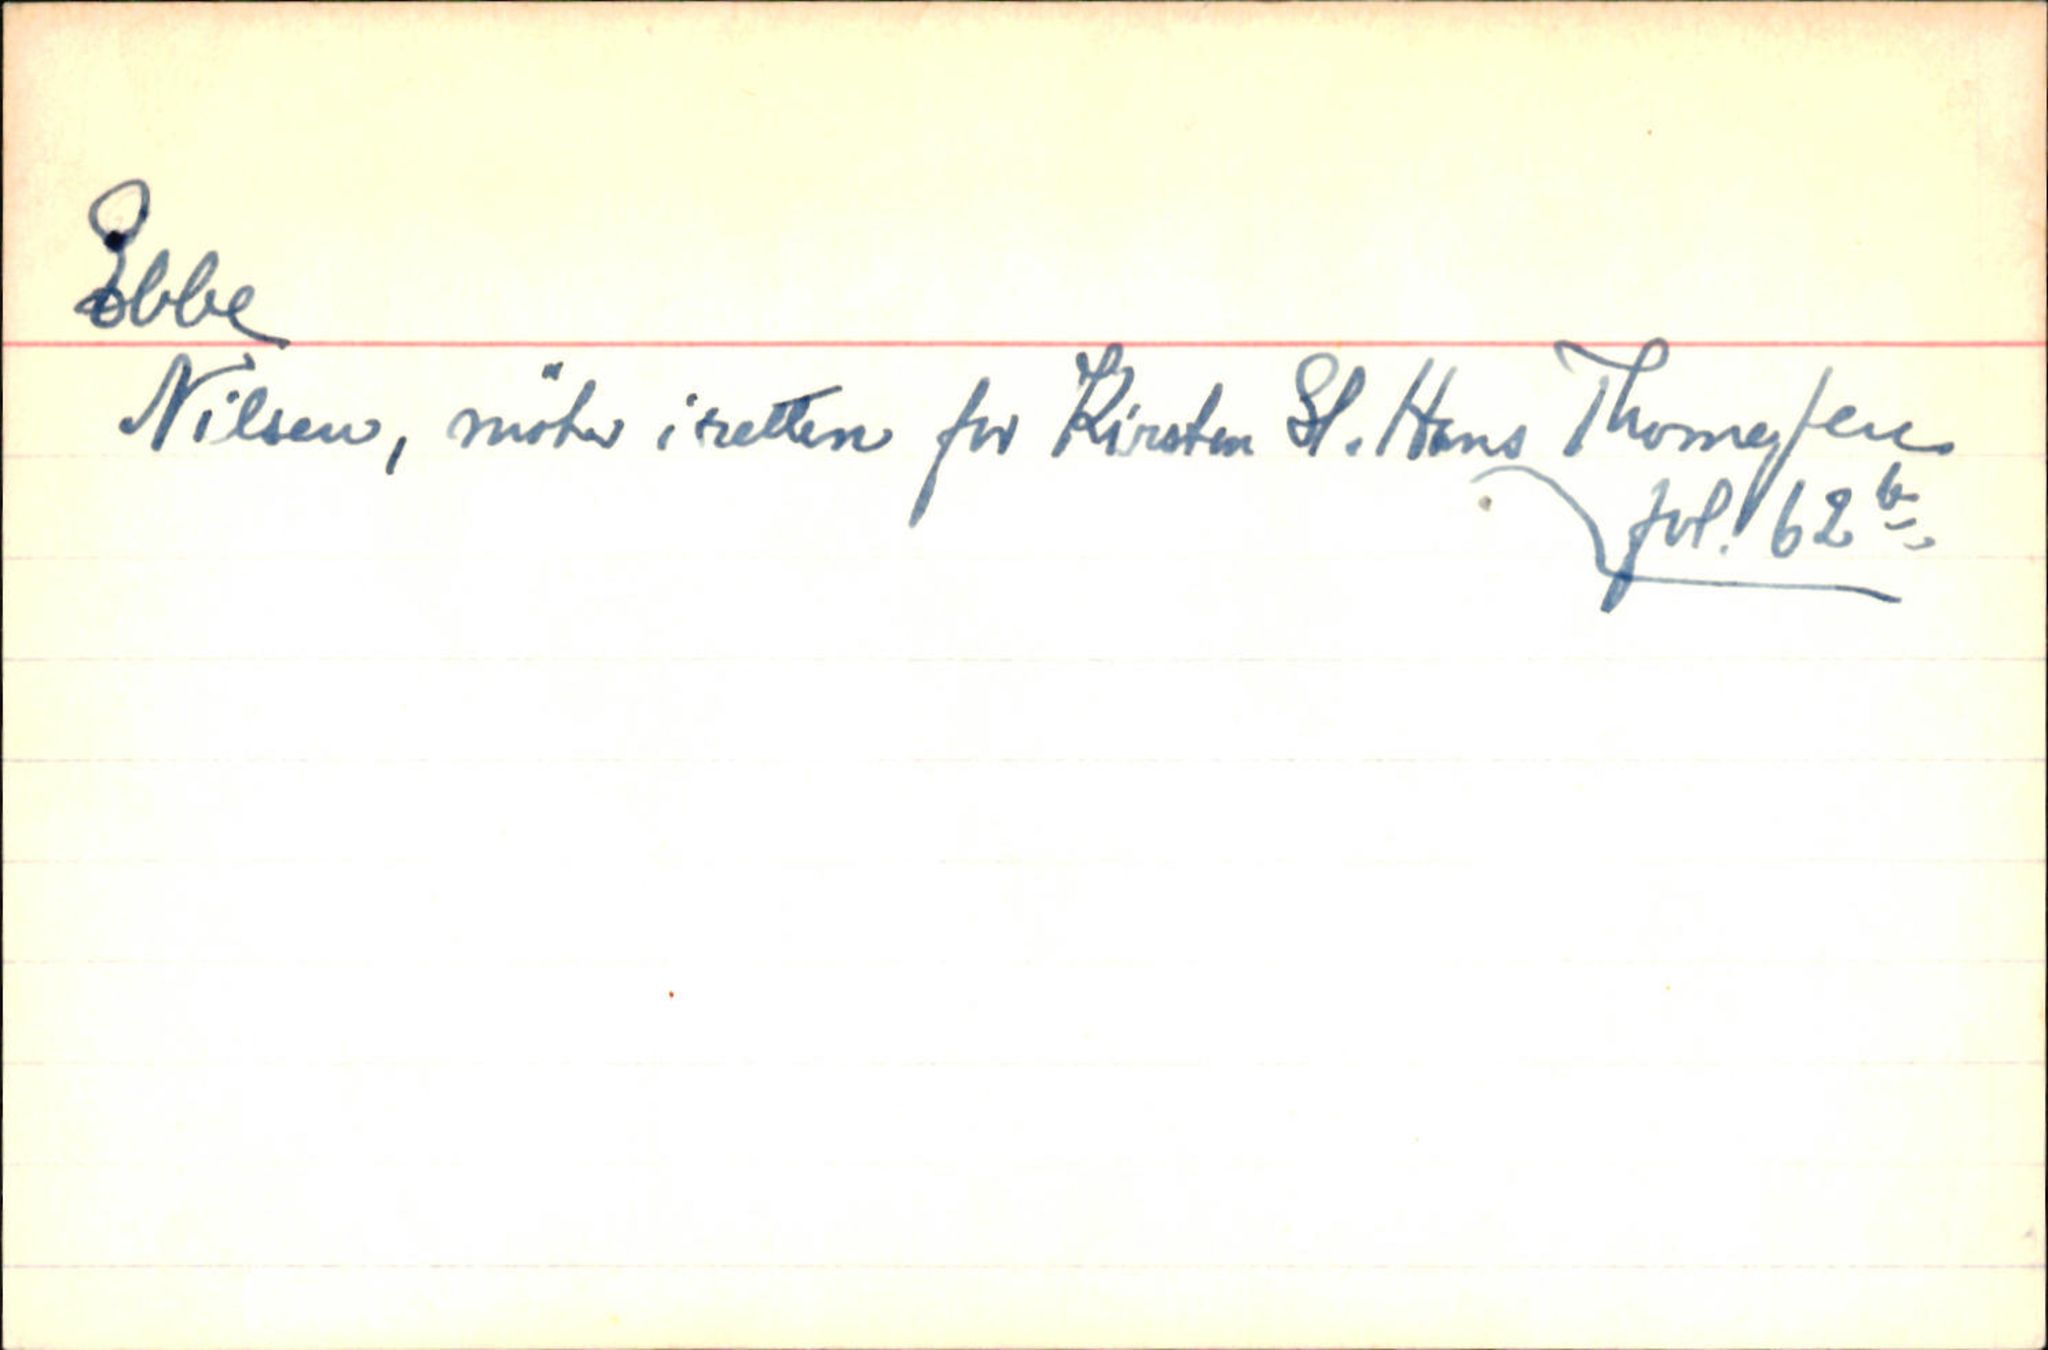 Ebbe
Nilsen, möter i retten for Kirsten Sl. Hans Thomesen.
fol. 62 b.